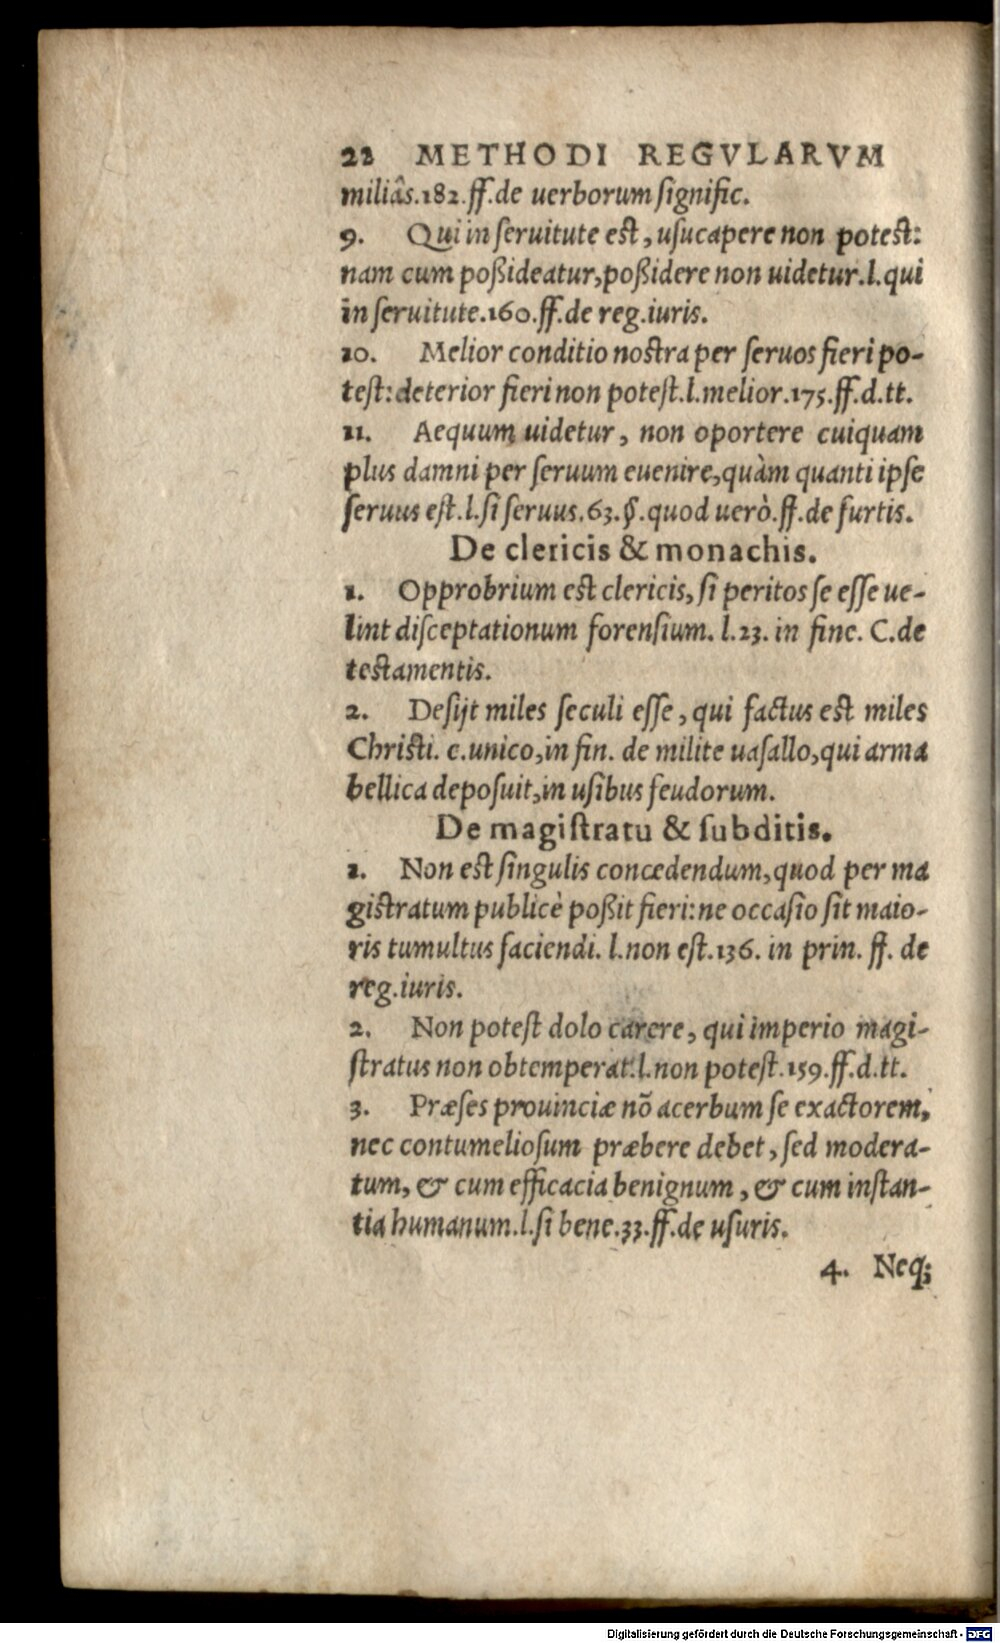 22 METHODI REGVLARVM
miliâs.182.ff.de uerborum signific.
9. Qui in seruitute est, usucapere non potest:
nam cum poßideatur, poßidere non uidetur.l.qui
in seruitute.160.ff.de reg.iuris.
10. Melior conditio nostra per seruos fieri po-
test: deterior fieri non potest.l.melior.175.ff.d.tt.
11. Aequum uidetur, non oportere cuiquam
plus damni per seruum euenire, quàm quanti ipse
seruus est.l.si seruus.63.§.quod uerò.ff.de furtis.
De clericis & monachis.
1. Opprobrium est clericis, si peritos se esse ue-
lint disceptationum forensium. l.23. in fine. C.de
testamentis.
2. Desijt miles seculi esse, qui factus est miles
Christi. c.unico, in fin. de milite uasallo, qui arma
bellica deposuit, in usibus feudorum.
De magistratu & subditis.
1. Non est singulis concedendum, quod per ma
gistratum publicè poßit fieri: ne occasio sit maio-
ris tumultus faciendi. l.non est.136. in prin. ff. de
reg.iuris.
2. Non potest dolo carere, qui imperio magi-
stratus non obtemperat.l.non potest.159.ff.d.tt.
3. Præses prouinciæ nõ acerbum se exactorem,
nec contumeliosum præbere debet, sed modera-
tum, & cum efficacia benignum, & cum instan-
tia humanum.l.si bene.33.ff.de usuris.
4. Neq;
Digitalisierung gefördert durch die Deutsche Forschungsgemeinschaft - DFG